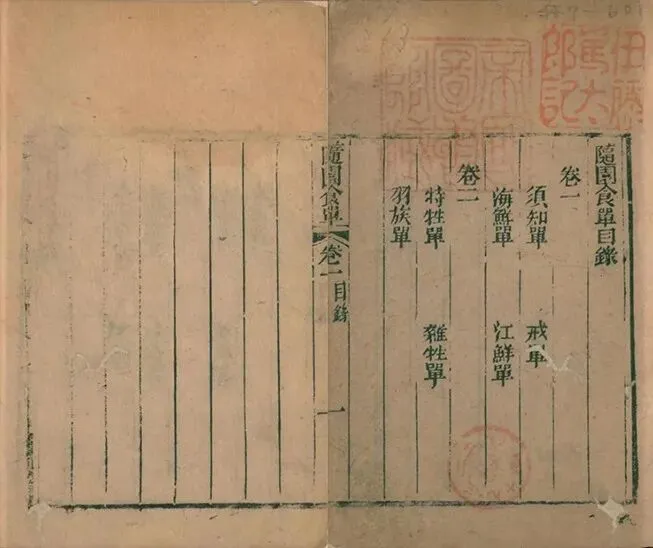 隨園食單目錄
卷一
須知單 戒單
海鮮單 江鮮單
卷二
特牲單 雜牲單
羽族單
隨園食單 卷一 目錄 一